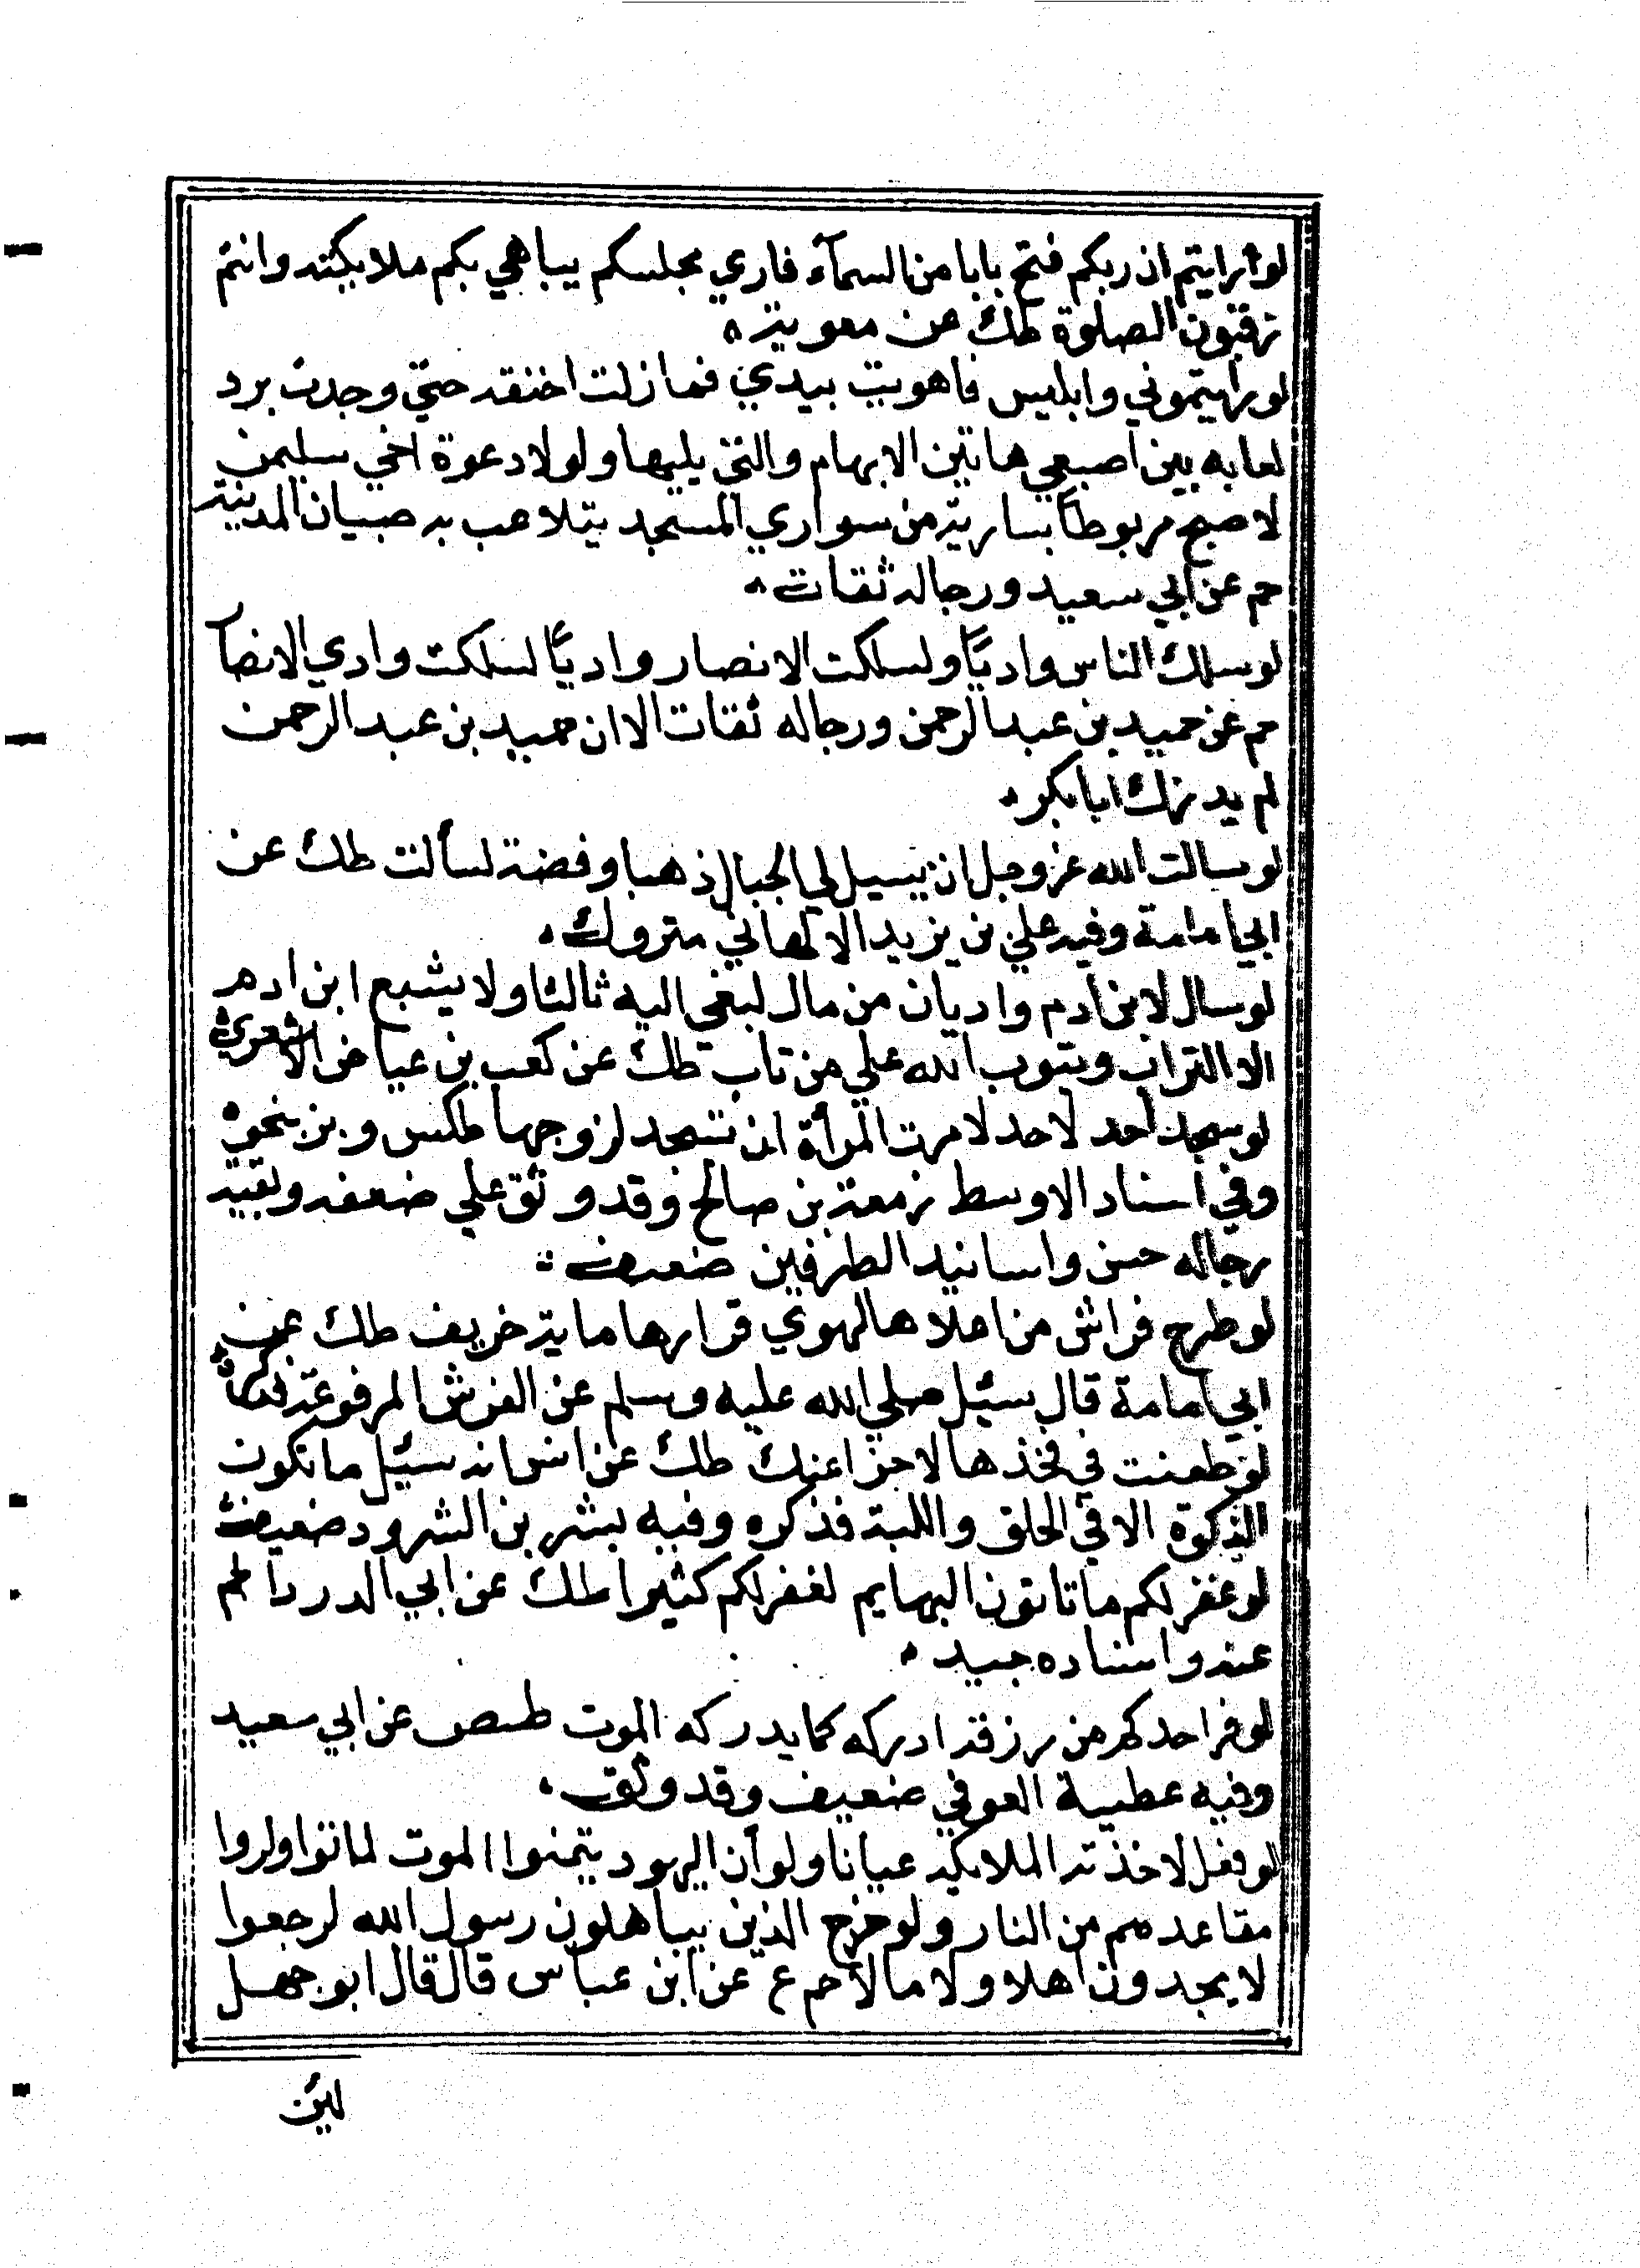 لو رايتم ان ربكم فتح بابا من السمآء فاري مجلسكم يباهي بكم ملايكته وانتم
ترقبون الصلوة طك عن معوية ه
لو رايتموني وابليس فاهويت بيدي فما زلت اخنقه حتي وجدت برد
لعابه بين اصبعي هاتين الابهام والتي يليها ولولا دعوة اخي سليمن
لاصبح مربوطا بسارية من سواري المسجد يتلاعب به صبيان المدينة
حم عن ابي سعيد ورجاله ثقات ه
لو سلك الناس واديًا ولسلكت الانصار واديًا لسلكت وادي الانصا
حم عن حميد بن عبد الرحمن ورجاله ثقات الا ان حميد بن عبد الرحمن
لم يدرك ابا بكر ه
لو سالت الله عز وجل ان يسيل لي الجبال ذهبا وفضة لسألت طك عن
ابي امامة وفيه علي بن يزيد الالهاني متروك ه
لو سال لابن ادم واديان من مال لبغي اليه ثالثا ولا يشبع ابن ادم
الا التراب ويتوب الله علي من تاب طك عن كعب بن عياض الاشعري
لو سجد أحد لاحد لامرت المرأة ان تسجد لزوجها طكس وبز بنحوه
وفي أسناد الاوسط زمعة بن صالح وقد وثق علي ضعفه وبقية
رجاله حسن واسانيد الطرفين ضعيف
لو طرح فراش من اعلاها لهوي قرارها ماية خريف طك عن
ابي امامة قال سئل صلي الله عليه وسلم عن الفرش المرفوعة فذكره
لو طعنت في فخذها لاجزا عنك طك عن انس انه سئل ما تكون
الذكوة الا في الحلق واللبة فذكره وفيه بشر بن الشرود ضعيف
لو غفر لكم ما تاتون البهايم لغفر لكم كثيرا طك عن ابي الدردا لم
عنه واسناده جيد ه
لو فر احدكم من رزقه ادركه كما يدركه الموت طسص عن ابي سعيد
وفيه عطية العوفي ضعيف وقد وثق ه
لو فعل لاخذته الملايكه عيانا ولو أن اليهود يتمنوا الموت لماتوا ولروا
مقاعدهم من النار ولو خرج الذين يباهلون رسول الله لرجعوا
لا يجدون اهلا ولا مالا حم ع عن ابن عباس قال قال ابو جهل
لين